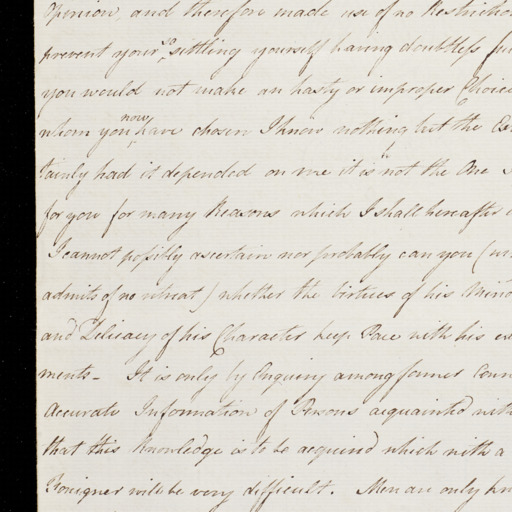 Opinion, and therefore made use of no Restrictio
prevent your so, settling yourself having doubtless ful
you would not make an hasty or improper Choice
whom you now have chosen I know nothing but the Ex
tainly had it depended on me it is not the One I
for you for many Reasons which I shall hereafter
I cannot possibly ascertain nor probably can you (
admits of no retreat) whether the Virtues of his Mind
and Delicacy of his Character keep Pace with his ex
ments – It is only by Enquiry among former Conn
Accurate Information of Persons acquainted with
that this Knowledge is to be acquired which with a
Foreigner will be very difficult. Men are only kn